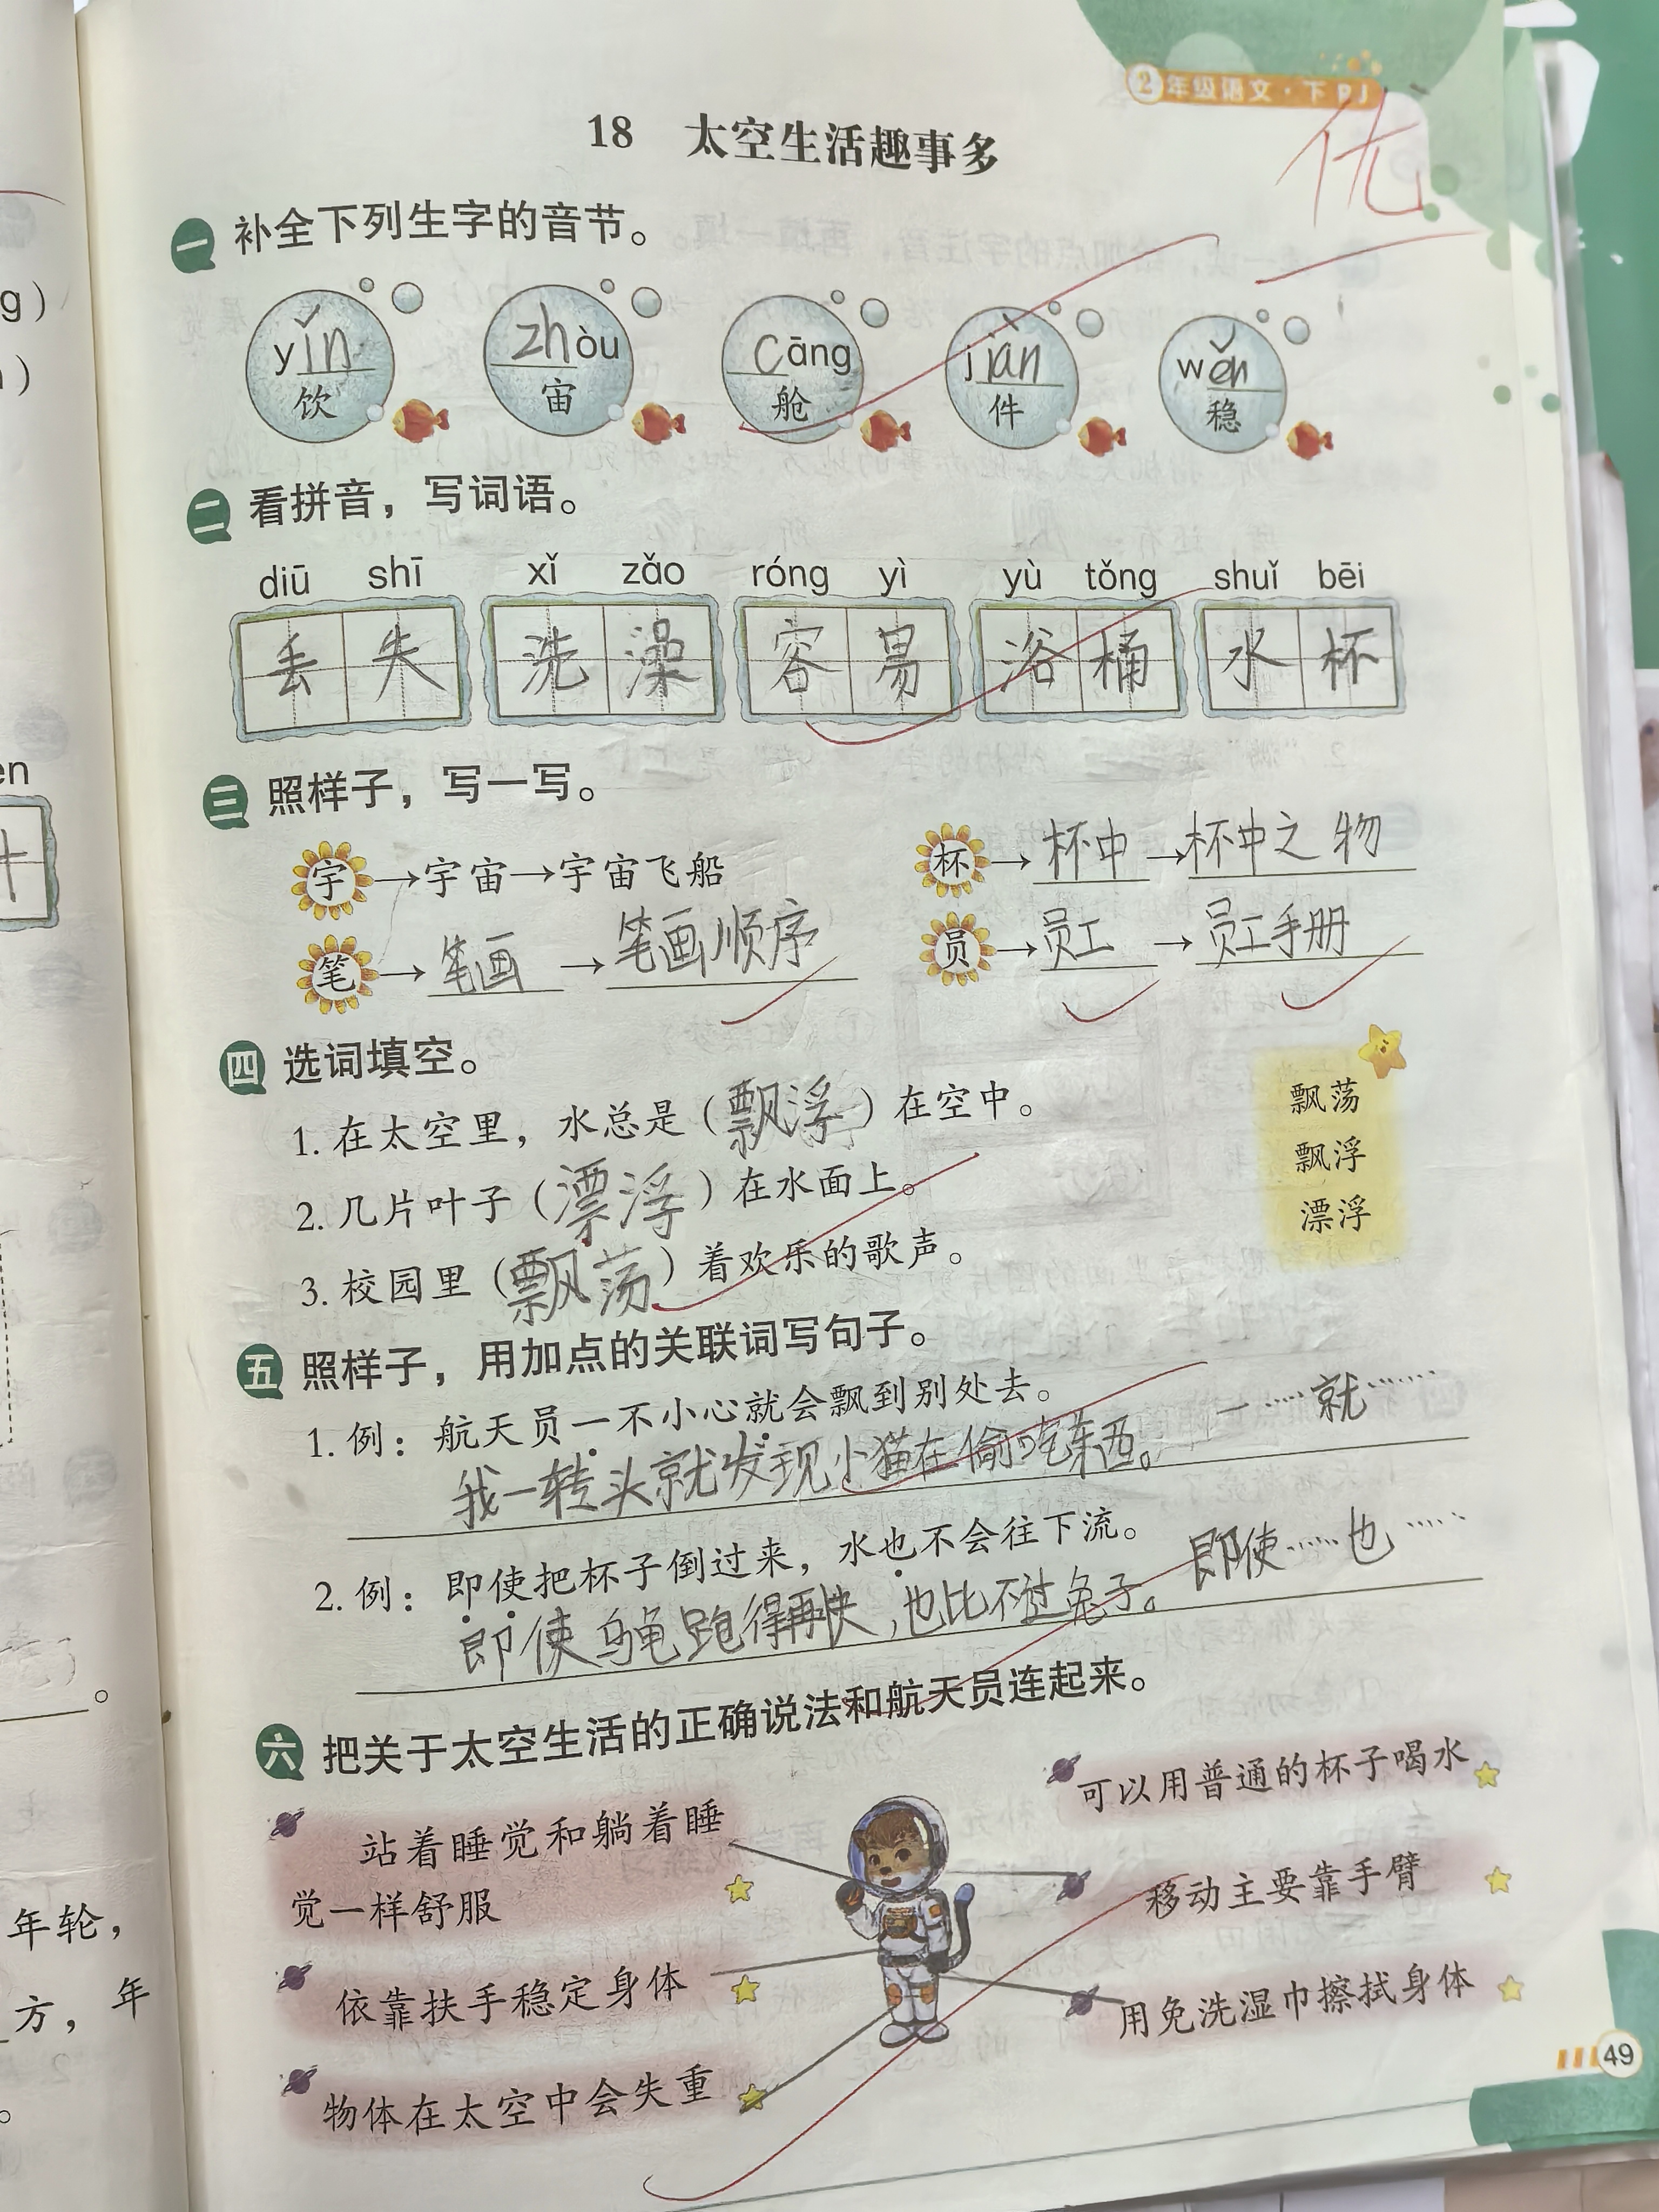 ②年级语文·下 RJ
优
18 太空生活趣事多
一 补全下列生字的音节。
yǐn zhòu cāng jiàn wěn
饮 宙 舱 件 稳
二 看拼音，写词语。
diū shī xǐ zǎo róng yì yù tǒng shuǐ bēi
丢失 洗澡 容易 浴桶 水杯
三 照样子，写一写。
宇→宇宙→宇宙飞船 杯→杯中→杯中之物
笔→笔画→笔画顺序 员→员工→员工手册
四 选词填空。
1. 在太空里，水总是（飘浮）在空中。
2. 几片叶子（漂浮）在水面上。
3. 校园里（飘荡）着欢乐的歌声。
飘荡
飘浮
漂浮
五 照样子，用加点的关联词写句子。
1. 例：航天员一不小心就会飘到别处去。
一……就……
我一转头就发现小猫在偷吃东西。
2. 例：即使把杯子倒过来，水也不会往下流。
即使……也……
即使乌龟跑得再快，也比不过兔子。
六 把关于太空生活的正确说法和航天员连起来。
站着睡觉和躺着睡
觉一样舒服
依靠扶手稳定身体
物体在太空中会失重
可以用普通的杯子喝水
移动主要靠手臂
用免洗湿巾擦拭身体
49
g）
）
en
叶
。
年轮，
方，年
。